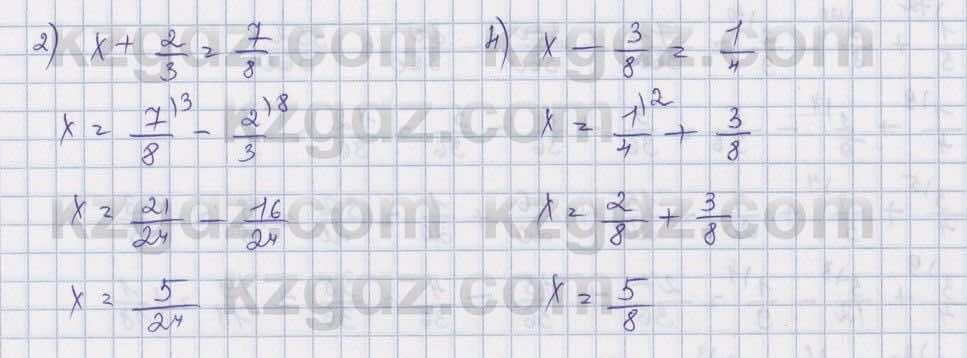 2) x + 2/3 = 7/8
x = 7/8 )3 - 2/3 )8
x = 21/24 - 16/24
x = 5/24
4) x - 3/8 = 1/4
x = 1/4 )2 + 3/8
x = 2/8 + 3/8
x = 5/8
kzgaz.com kzgaz.com
kzgaz.com
kzgaz.com kzgaz.com
kzgaz.com